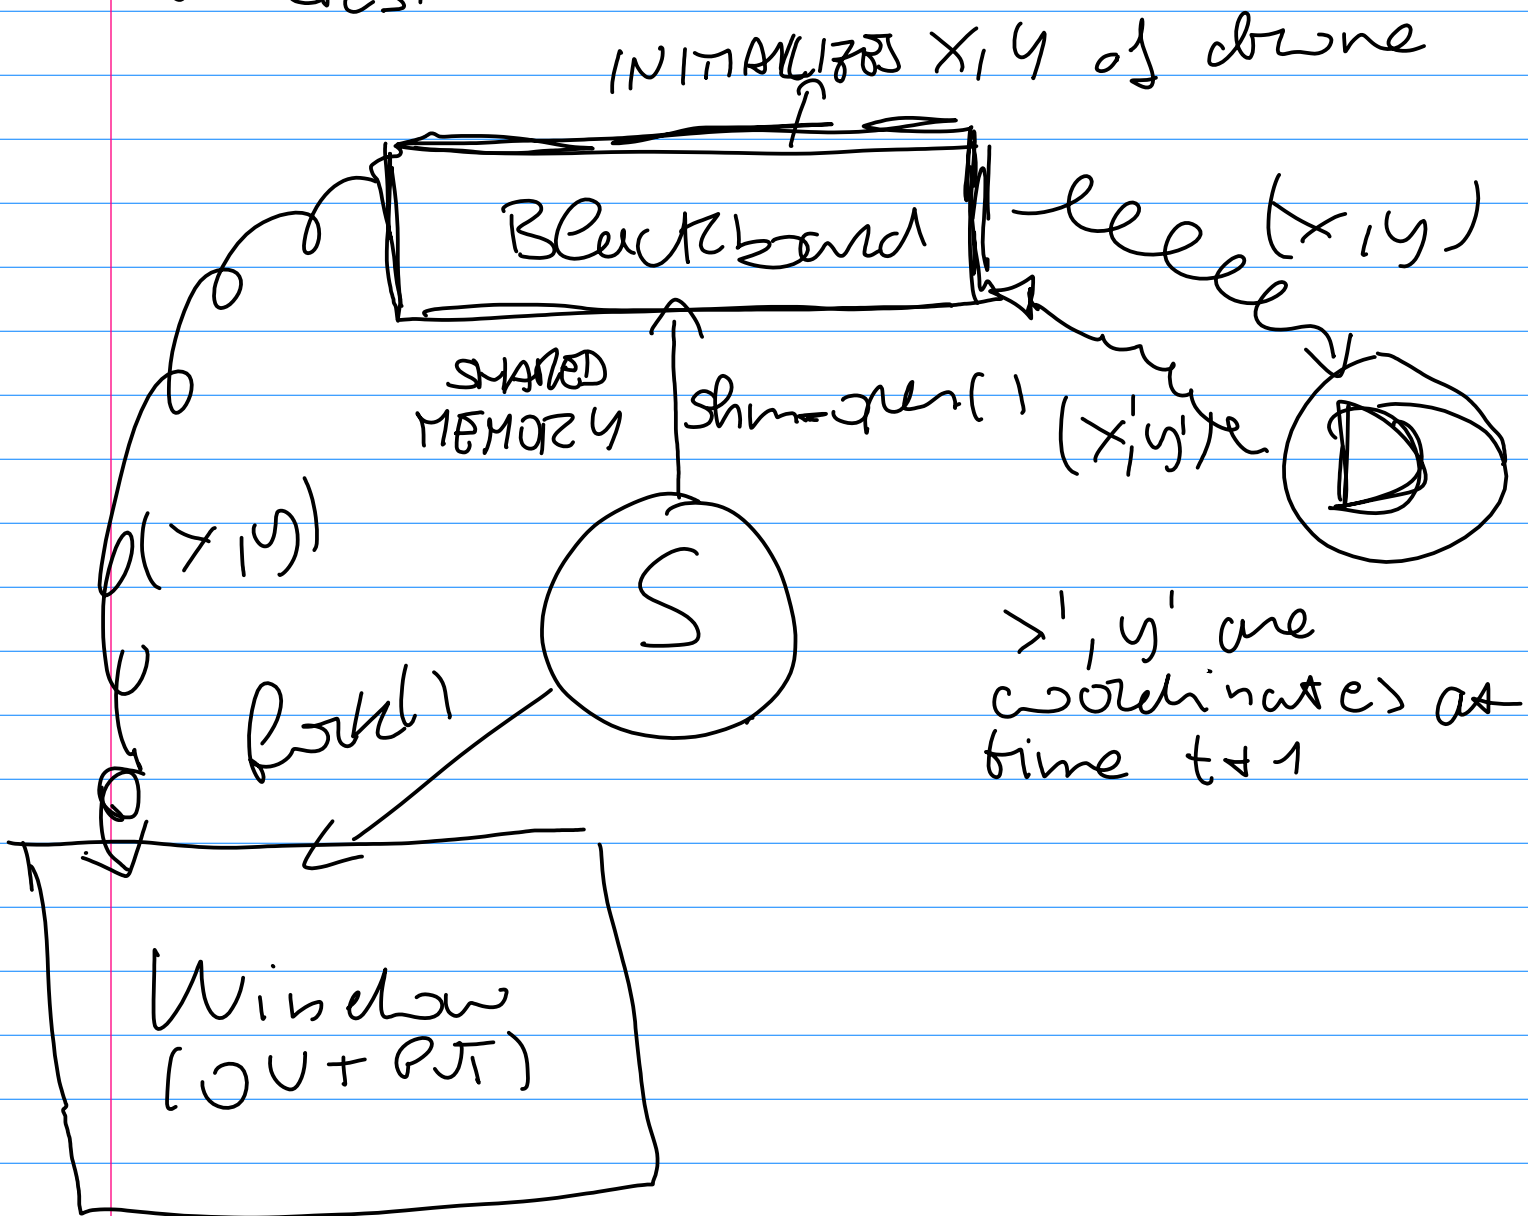 INITIALIZES x, y of drone
Blackboard
(x, y)
SHARED
MEMORY
shm_open()
(x', y')
D
(x, y)
S
x', y' are
coordinates at
time t+1
fork()
Window
(OUTPUT)